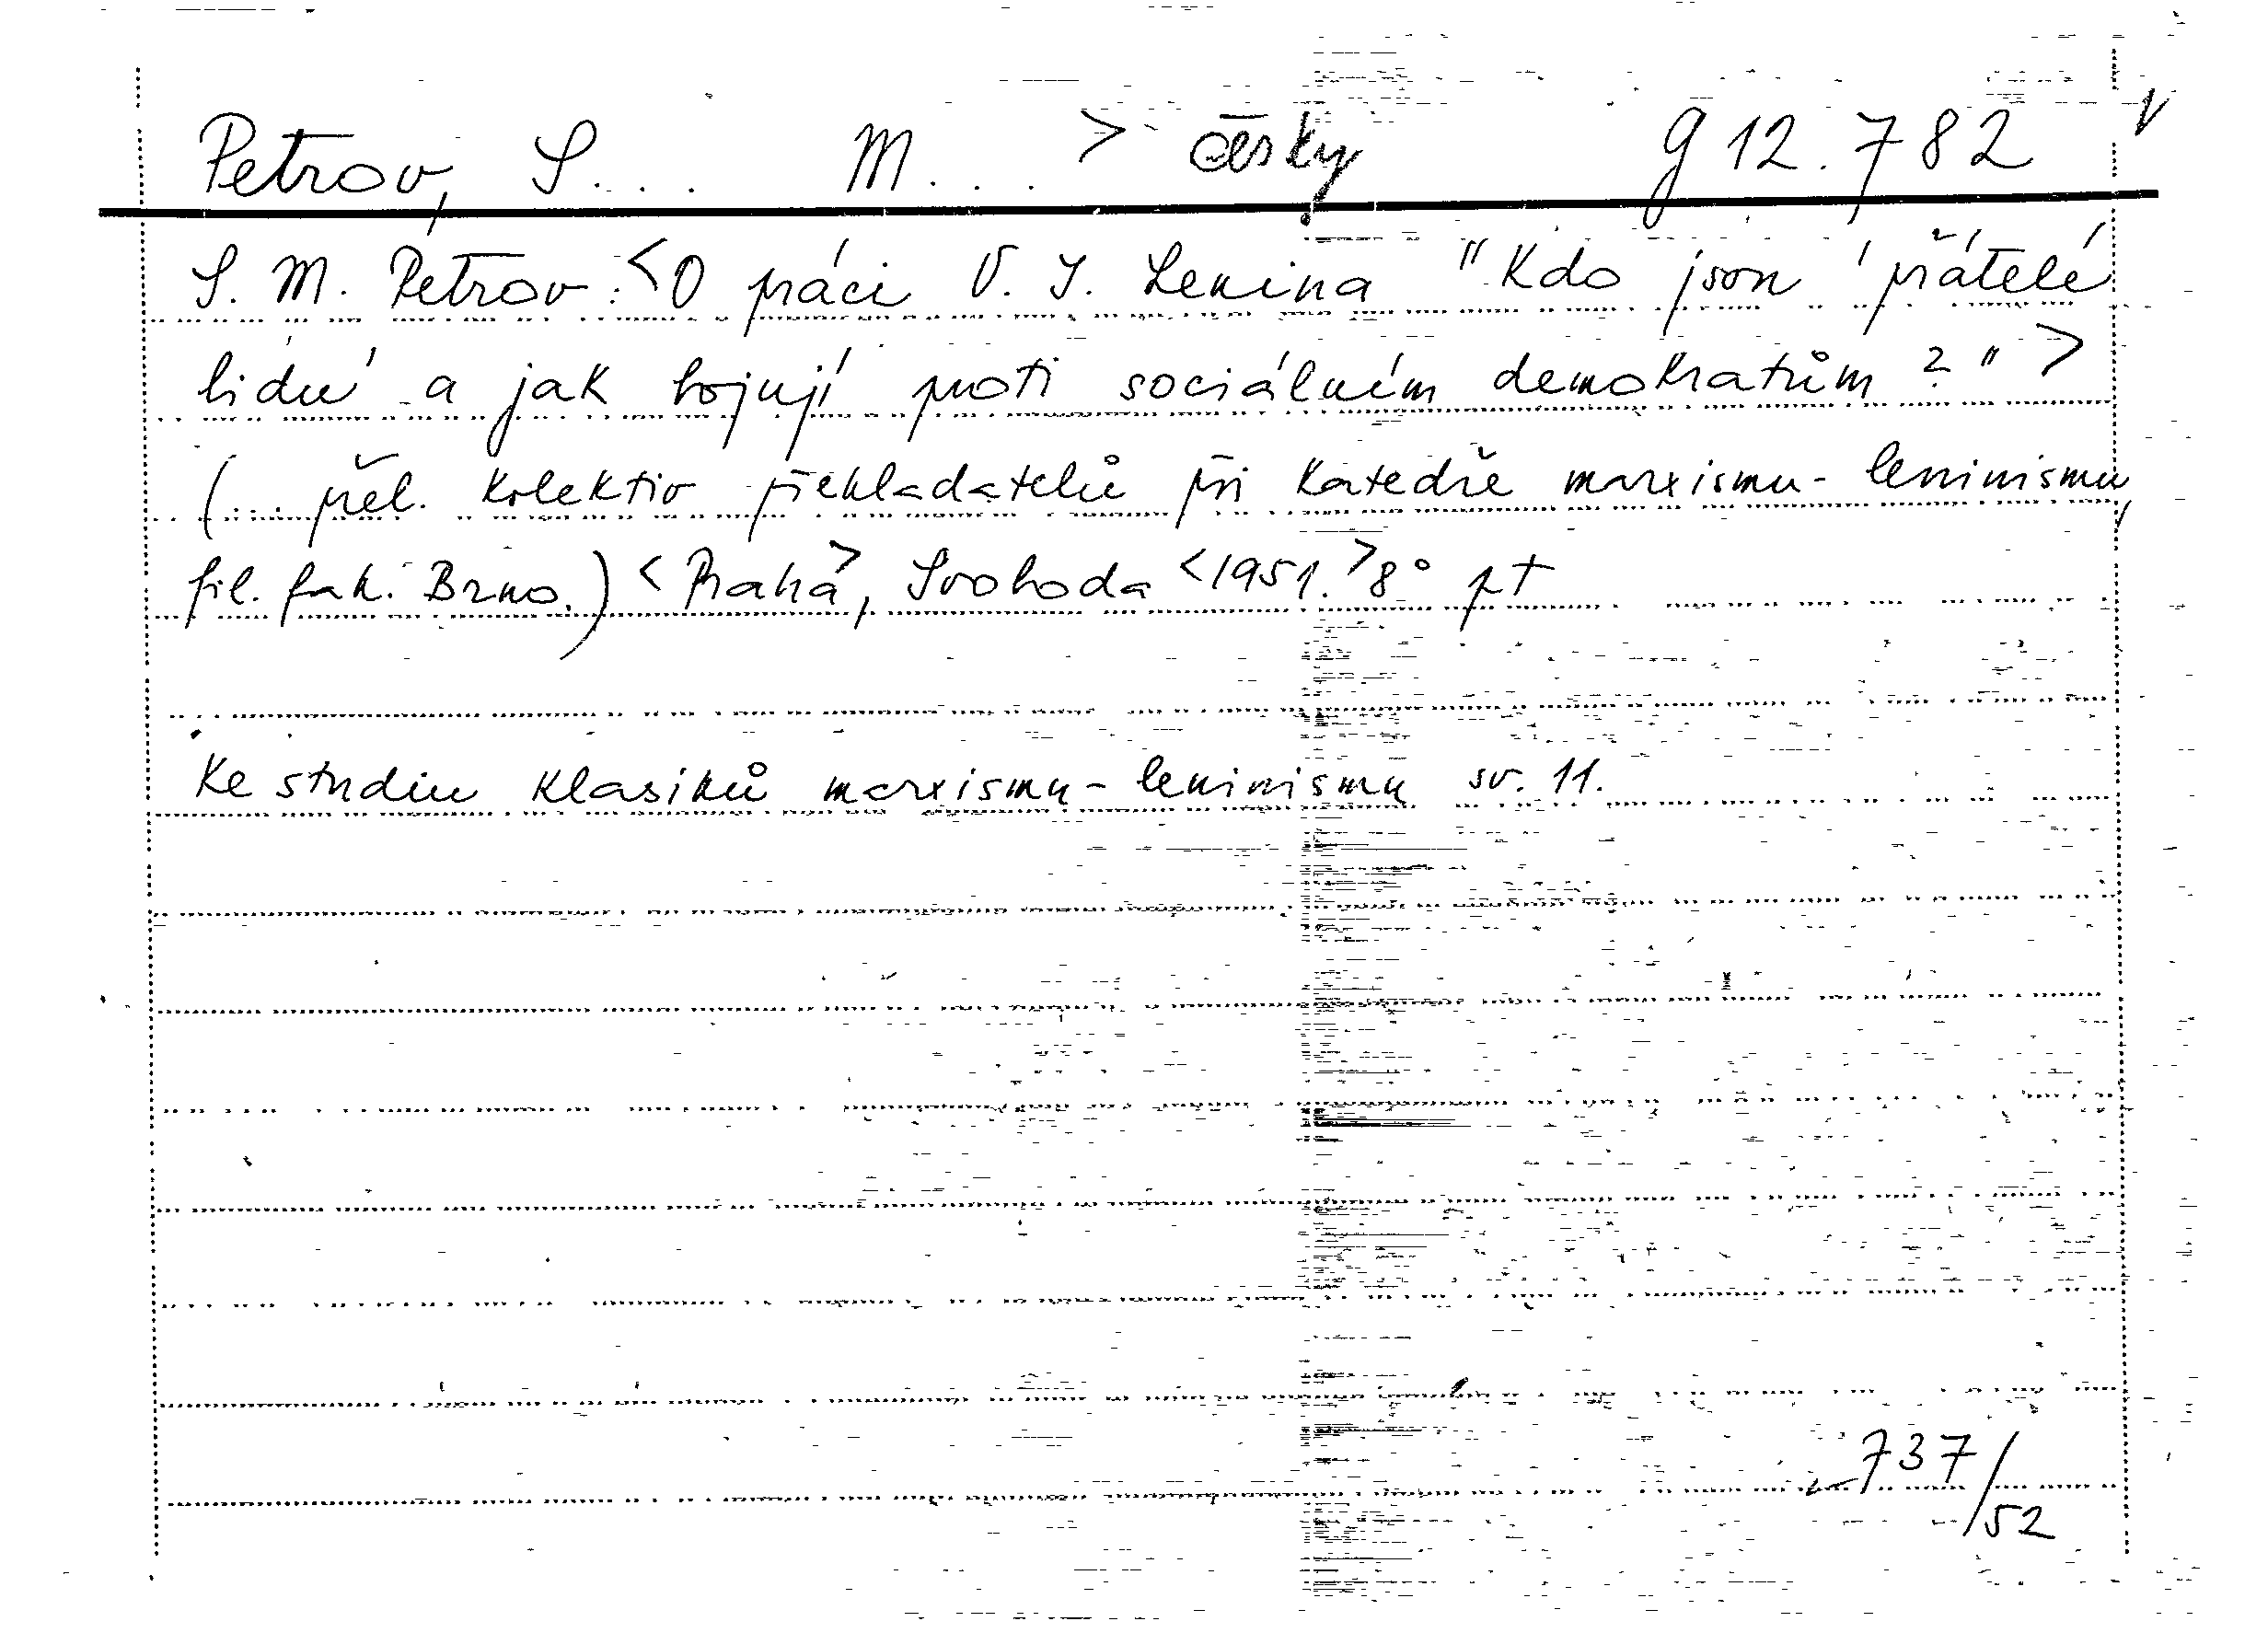 Petrov, S... M... > česky g 12.782 V
S. M. Petrov: <O práci V. I. Lenina "Kdo jsou 'přátelé
lidu' a jak bojují proti sociálním demokratům?">
(... přel. kolektiv překladatelů při katedře marxismu-leninismu
fil. fak. Brno.) <Praha>, Svoboda <1951.> 8°
Ke studiu klasiků marxismu-leninismu sv. 11.
737/52